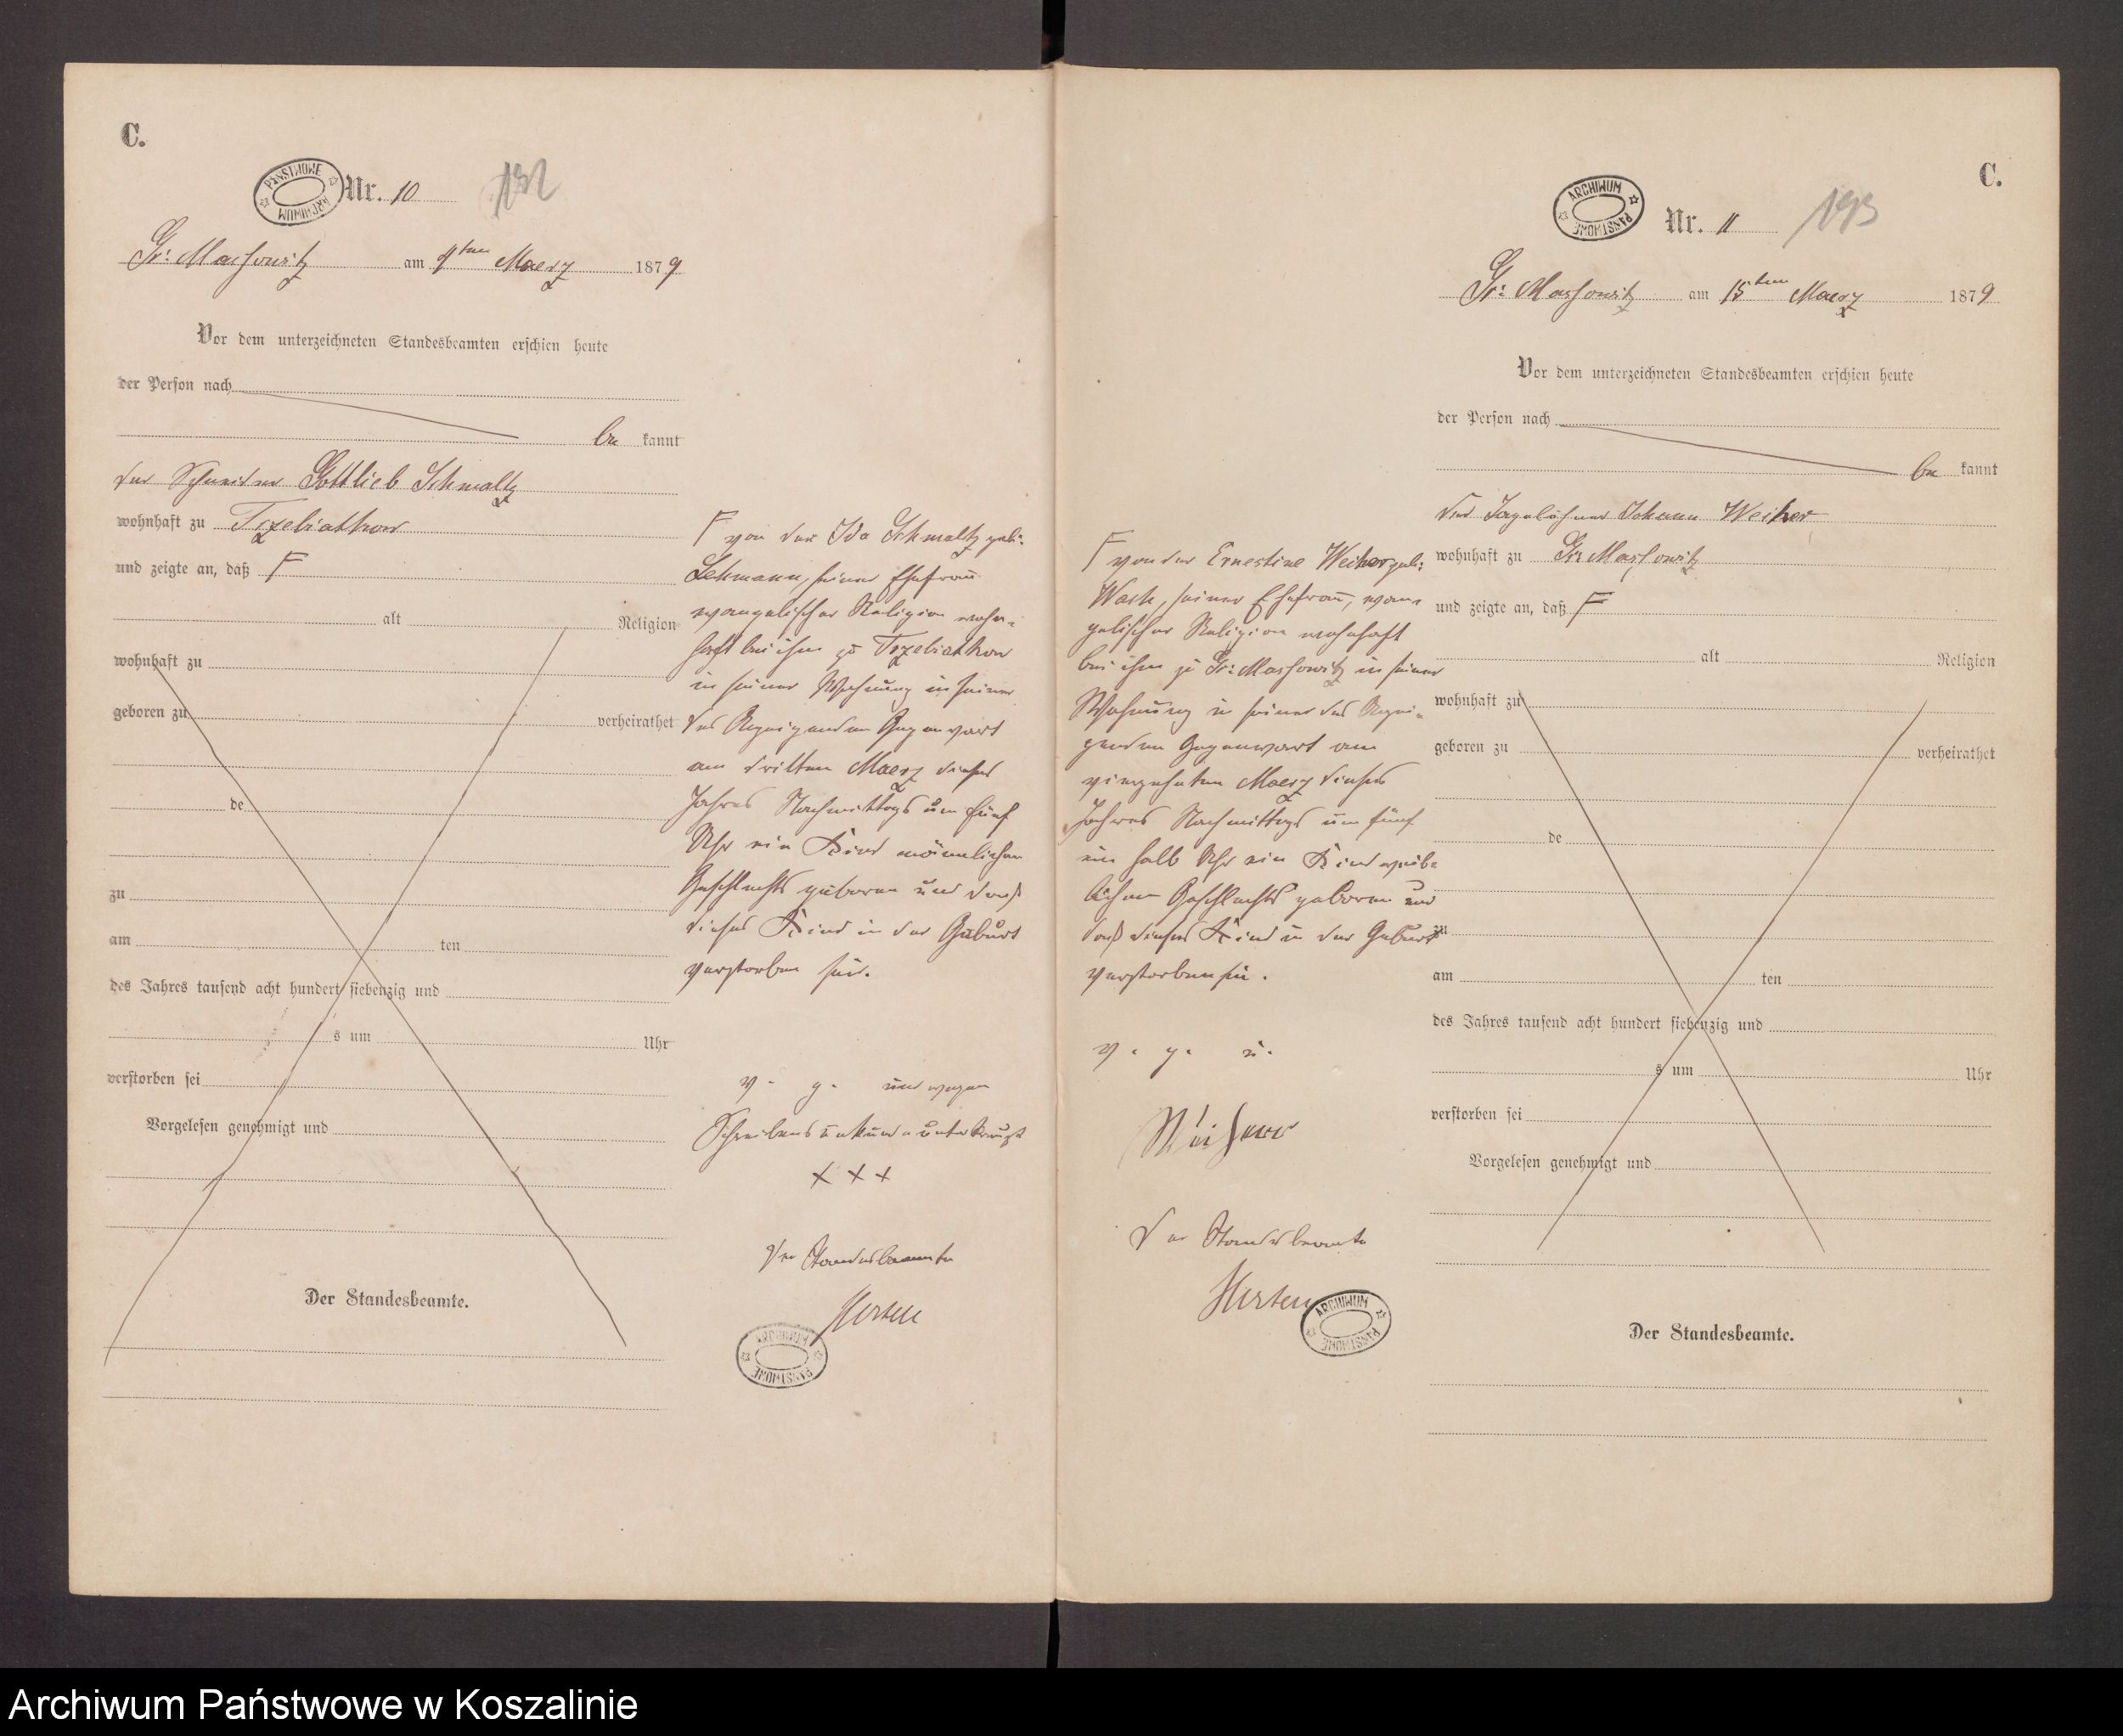 C.
PAŃSTWOWE ARCHIWUM
Nr. 10
192
Gr: Massowitz am 4ten Maerz 1879
Vor dem unterzeichneten Standesbeamten erschien heute
der Person nach
be kannt
der Schneider Gottlieb Schmaltz
wohnhaft zu Trzebiatkow
und zeigte an, daß F
alt Religion
wohnhaft zu
geboren zu verheirathet
de
zu
am ten
des Jahres tausend acht hundert siebenzig und
s um Uhr
verstorben sei
Vorgelesen genehmigt und
Der Standesbeamte.
F von der Ida Schmaltz geb:
Lehmann, seiner Ehefrau
evangelischer Religion wohn-
haft bei ihm zu Trzebiatkow
in seiner Wohnung in seiner
des Anzeigenden Gegenwart
am dritten Maerz dieses
Jahres Nachmittags um fünf
Uhr ein Kind männlichen
Geschlechts geboren und daß
dieses Kind in der Geburt
verstorben sei.
v. g. und wegen
Schreibensunkunde unterkreuzt
+ + +
Der Standesbeamte
Hersten
ARCHIWUM PAŃSTWOWE
C.
ARCHIWUM PAŃSTWOWE
Nr. 11
193
Gr: Massowitz am 15ten Maerz 1879
Vor dem unterzeichneten Standesbeamten erschien heute
der Person nach
be kannt
der Tagelöhner Johann Weiher
wohnhaft zu Gr: Massowitz
und zeigte an, daß F
alt Religion
wohnhaft zu
geboren zu verheirathet
de
zu
am ten
des Jahres tausend acht hundert siebenzig und
s um Uhr
verstorben sei
Vorgelesen genehmigt und
Der Standesbeamte.
F von der Ernestine Weiher geb:
seiner Ehefrau, evan-
gelischer Religion wohnhaft
bei ihm zu Gr: Massowitz in seiner
Wohnung in seiner des Anzei-
genden Gegenwart am
vierzehnten Maerz dieses
Jahres Nachmittags um fünf
ein halb Uhr ein Kind weib-
lichen Geschlechts geboren und
daß dieses Kind in der Geburt
verstorben sei.
v. g. u.
Weiher
Der Standesbeamte
Hersten
ARCHIWUM PAŃSTWOWE
Archiwum Państwowe w Koszalinie